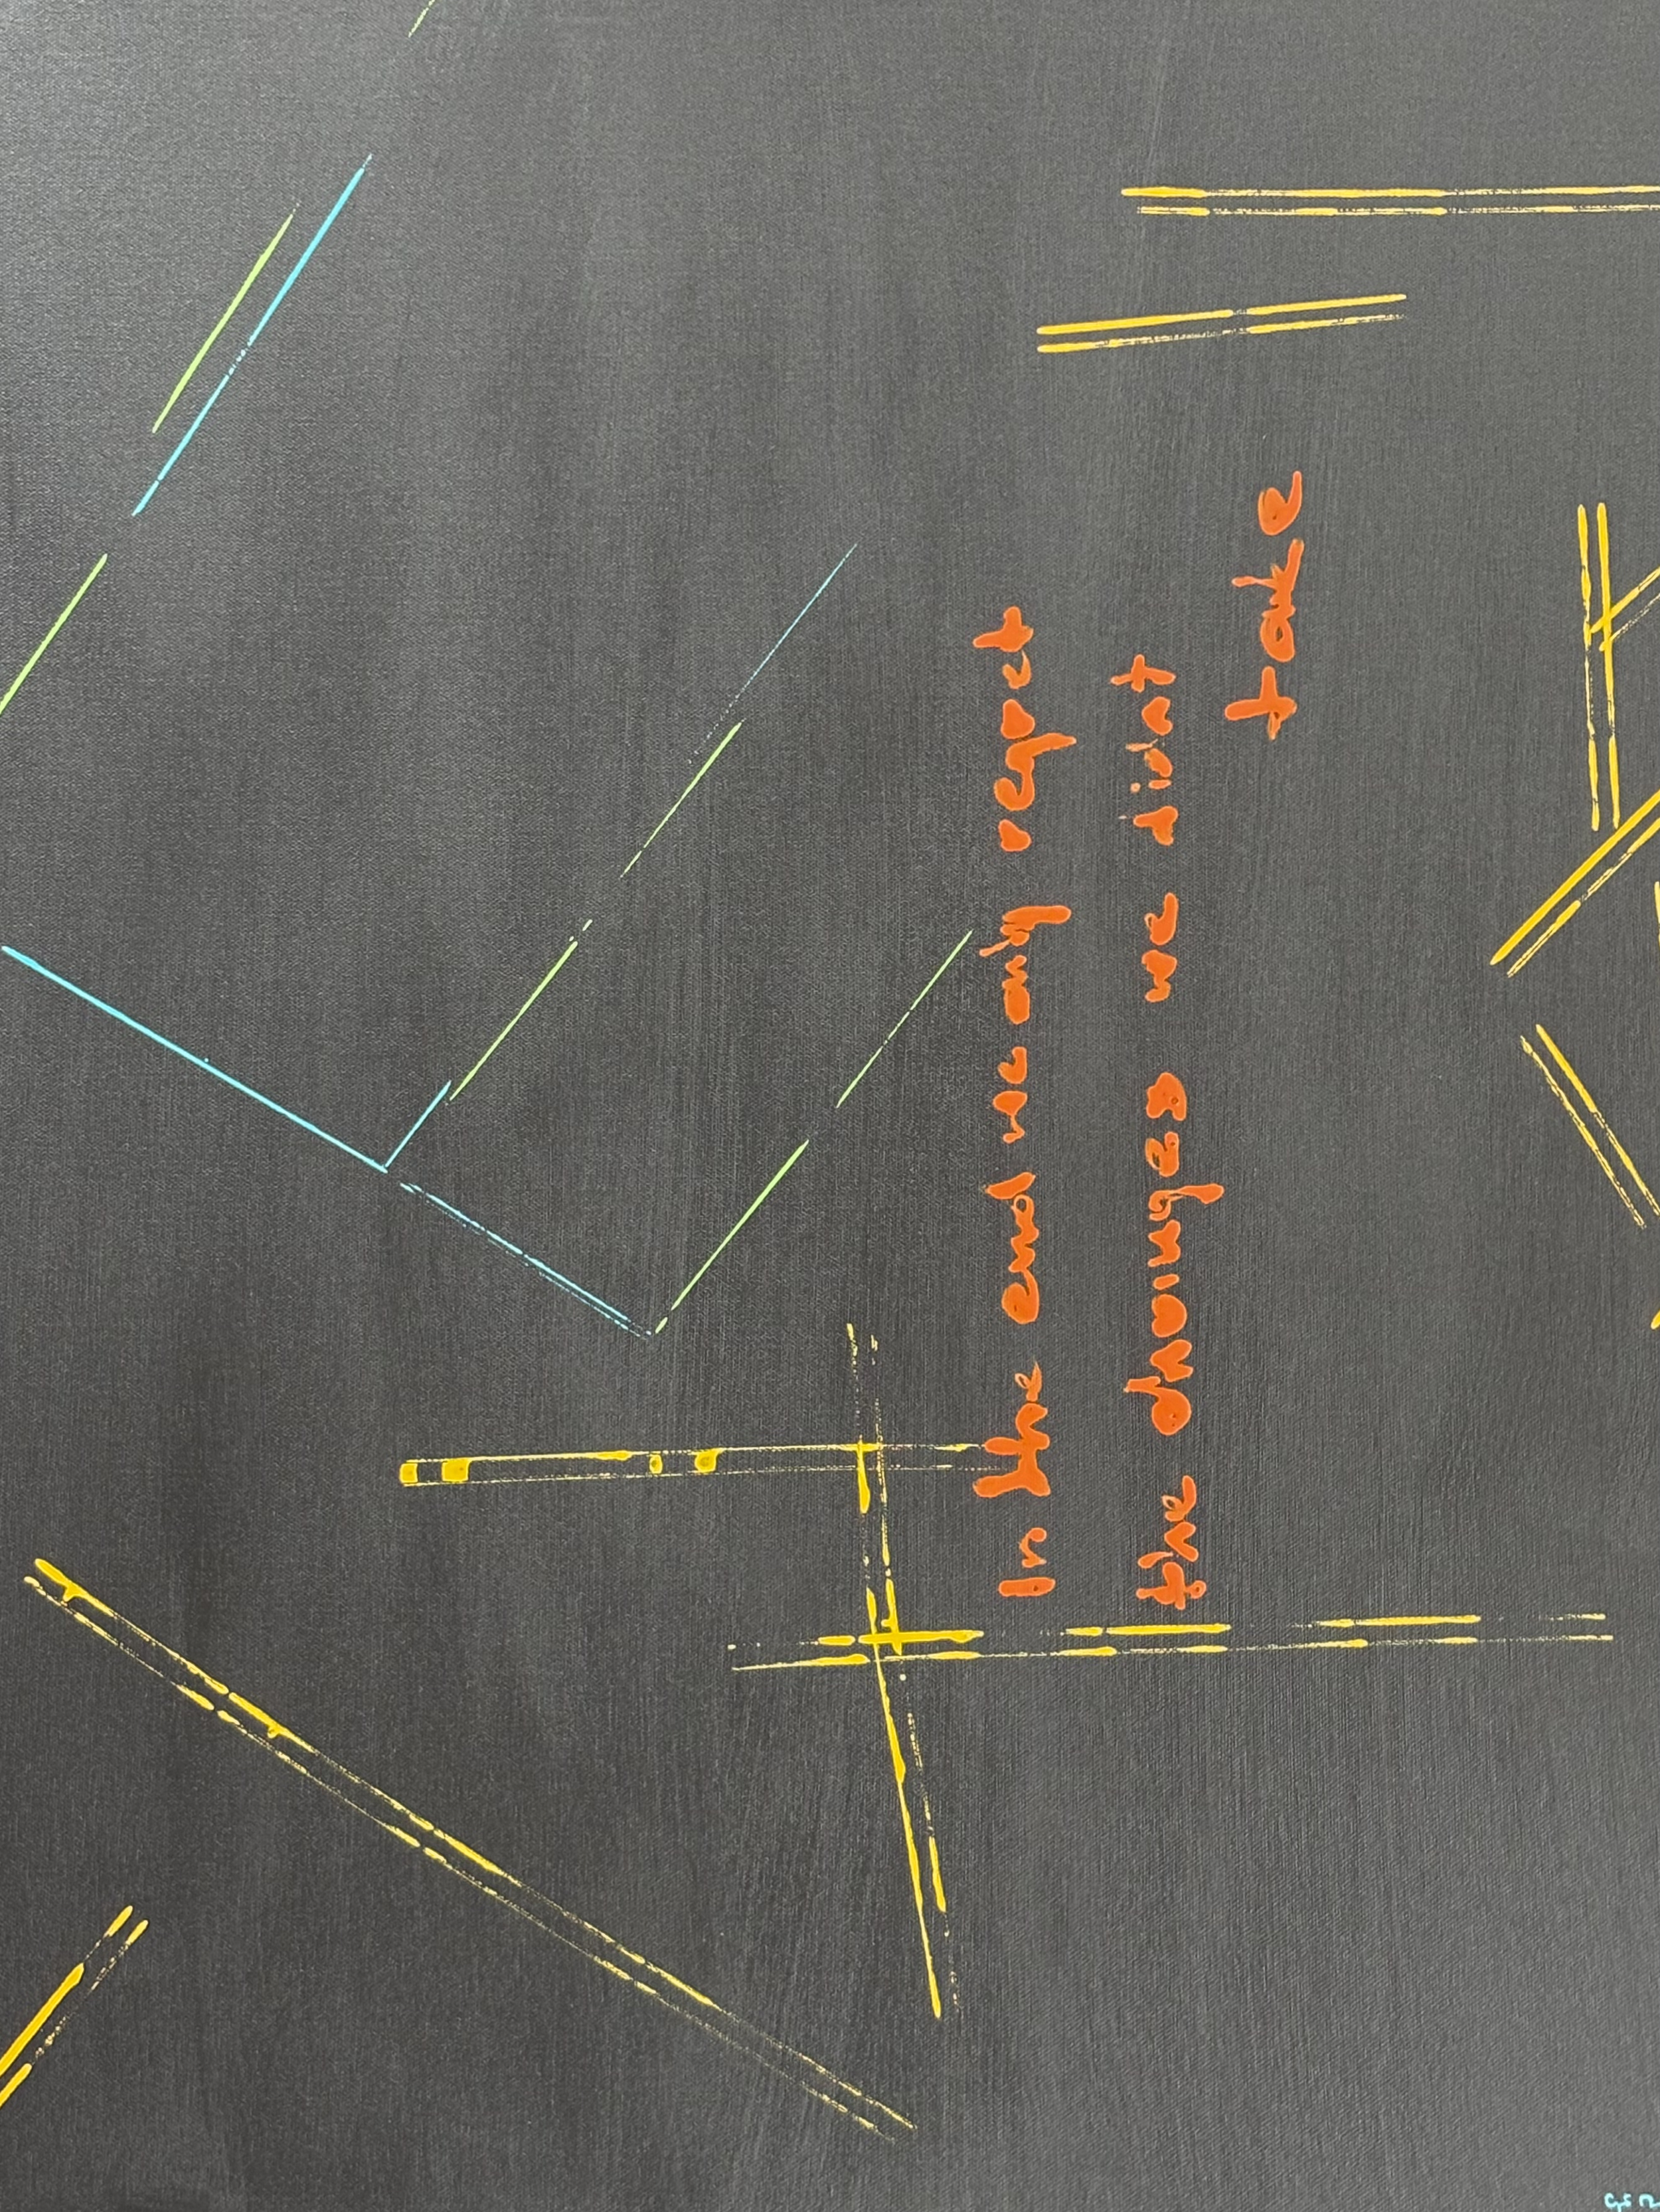 In the end we only regret
the changes we didnt
take